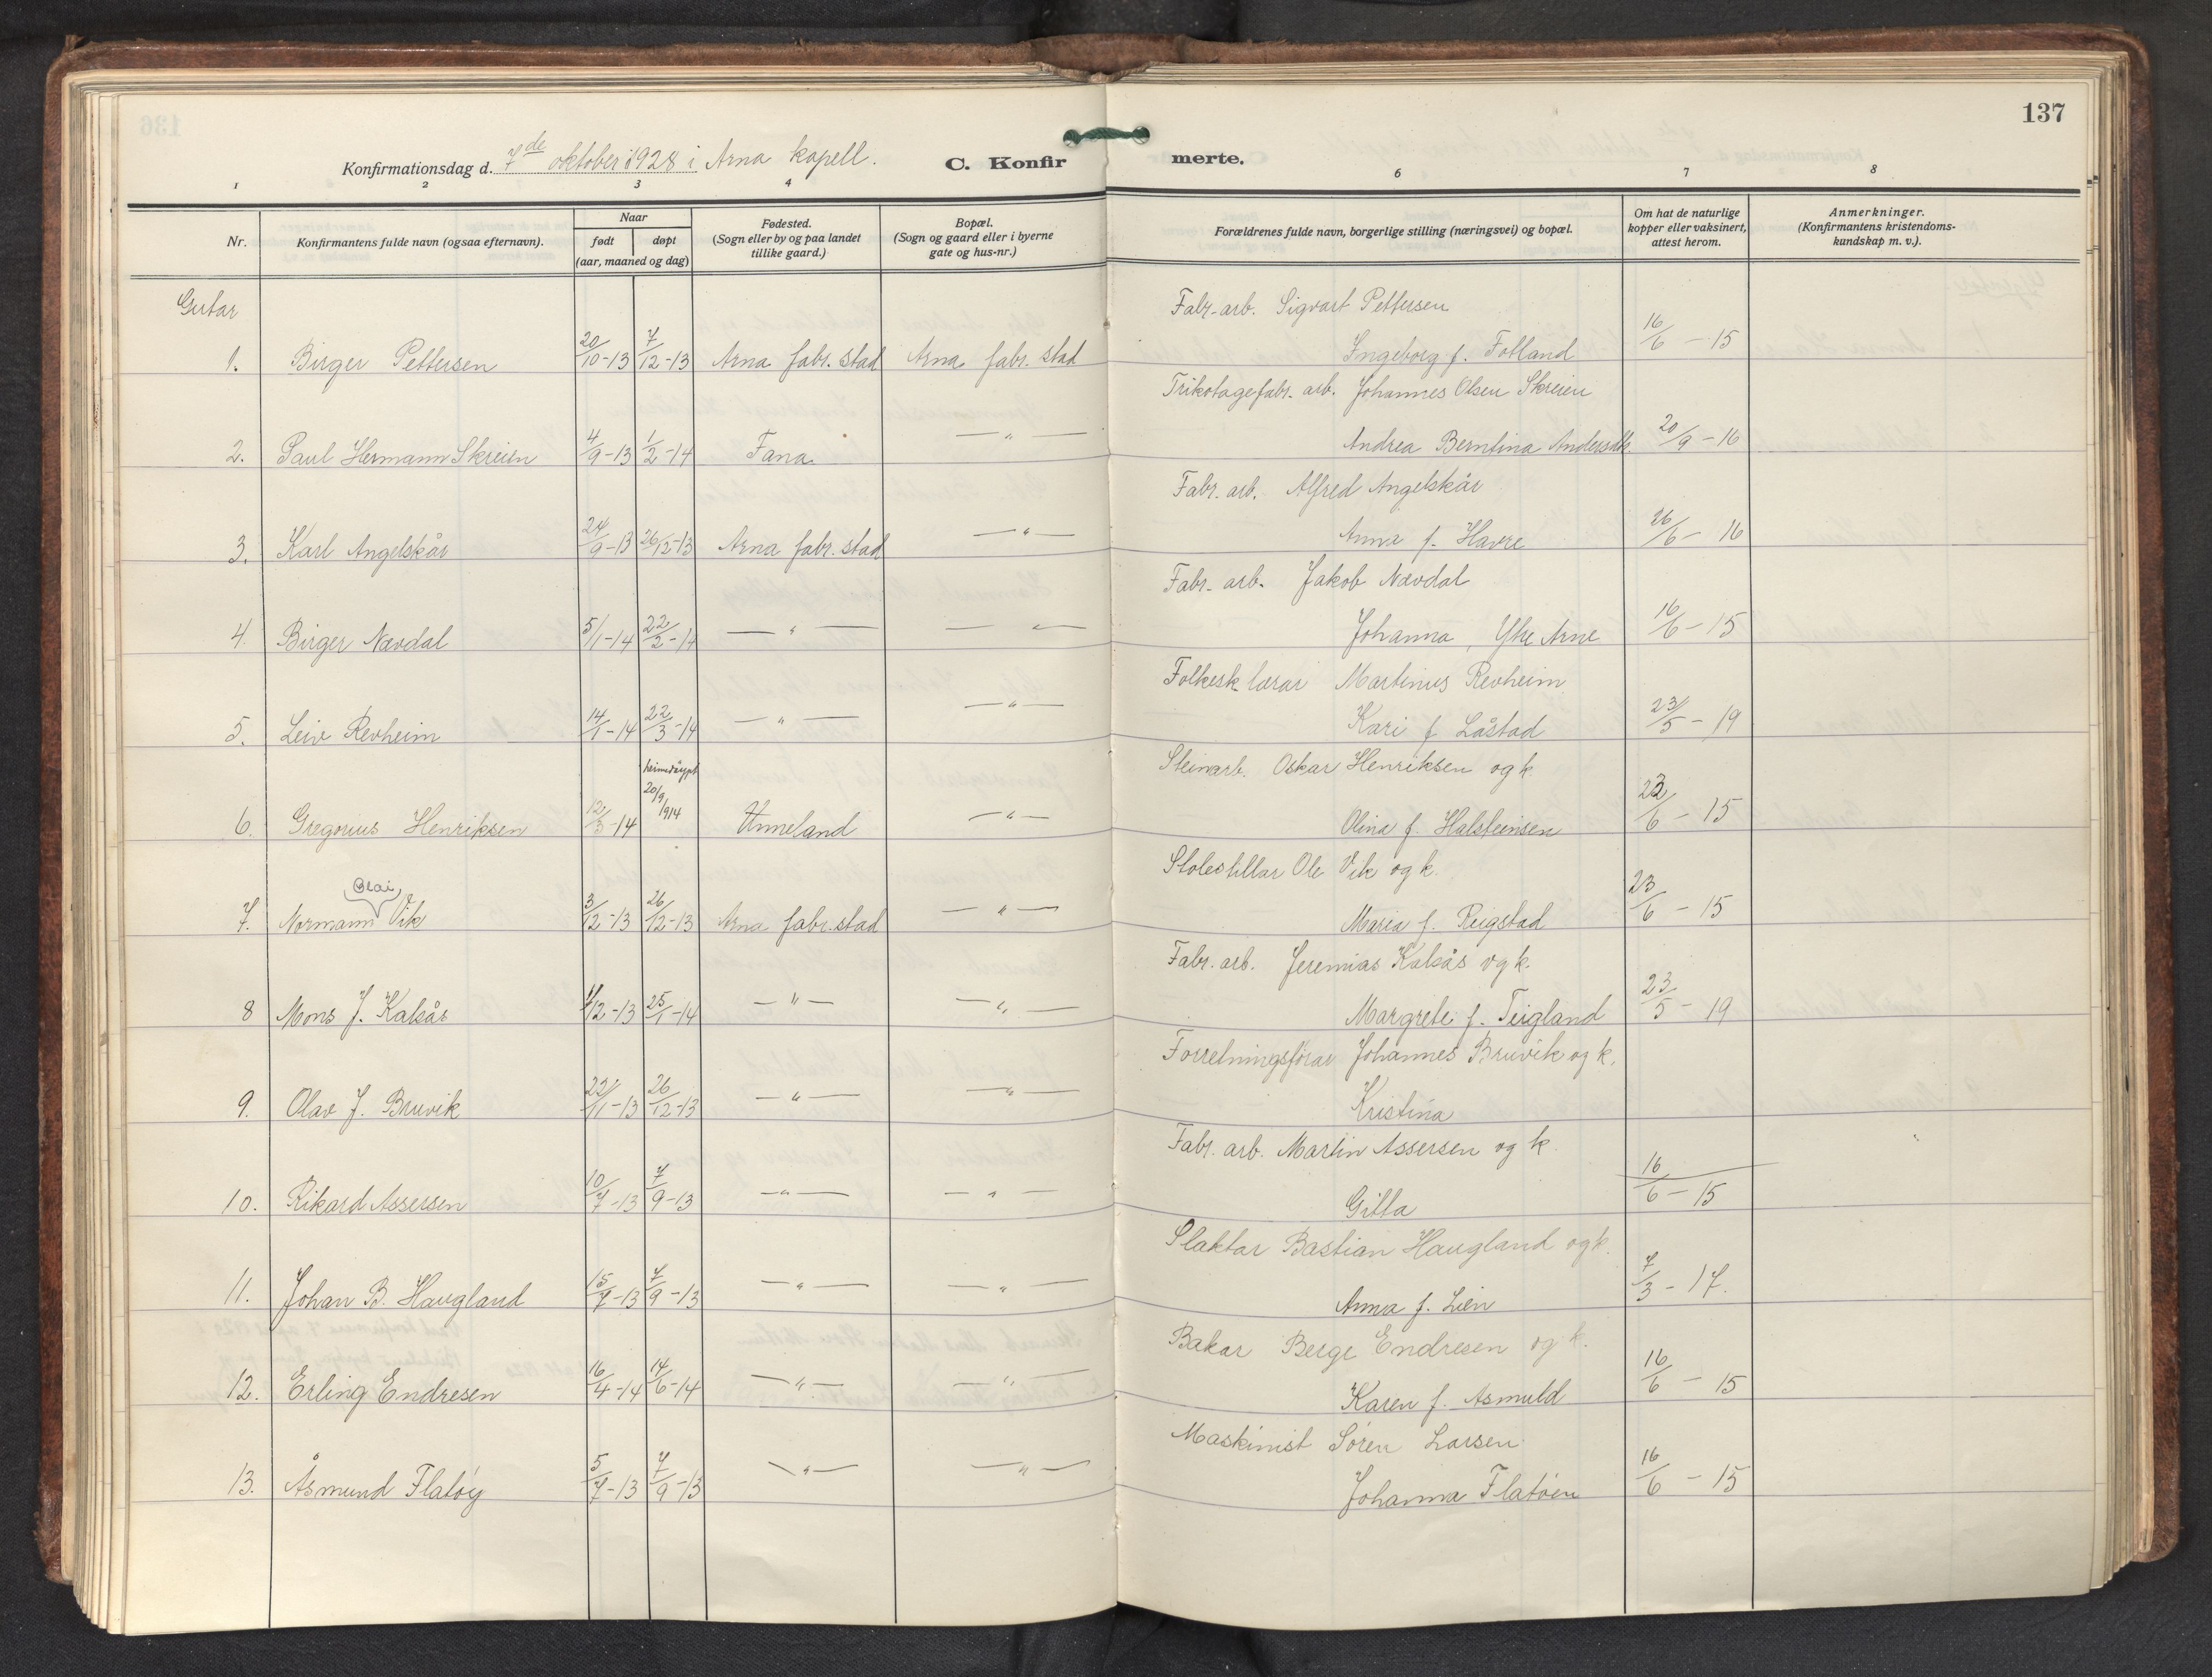 137
Konfirmationsdag d. 7de oktober 1928 i Arna kapell. C. Konfirmerte.
1 2 3 4 6 7 8
Nr. Konfirmantens fulde navn (ogsaa efternavn). Naar født døpt (aar, maaned og dag) Fødested. (Sogn eller by og paa landet tillike gaard.) Bopæl. (Sogn og gaard eller i byerne gate og hus-nr.) Forældrenes fulde navn, borgerlige stilling (næringsvei) og bopæl. Om hat de naturlige kopper eller vaksinert, attest herom. Anmerkninger. (Konfirmantens kristendomskundskap m. v.).
Gutar
Fabr.-arb. Sigvart Pettersen
1. Birger Pettersen 20/10-13 7/12-13 Arna fabr. stad Arna fabr. stad Ingeborg f. Fotland 16/6-15
Trikotagefabr. arb. Johannes Olsen Skreien
2. Paul Hermann Skreien 4/9-13 1/2-14 Fana — " — Andrea Berntina Andersdtr. 20/9-16
Fabr. arb. Alfred Angelskår
3. Karl Angelskår 24/9-13 26/12-13 Arna fabr. stad — " — Anna f. Havre 26/6-16
Fabr. arb. Jakob Nævdal
4. Birger Nævdal 5/1-14 22/3-14 — " — — " — Johanna, Ytre Arne 16/6-15
Folkesk. lærar Martinus Revheim
5. Leiv Revheim 14/1-14 22/3-14 — " — — " — Kari f. Låstad 23/5-19
Steinarb. Oskar Henriksen og k.
6. Gregorius Henriksen 12/3-14 heimedøypt 20/9 1914 Unneland — " — Olina f. Halsteinsen 23/6-15
Stolestillar Ole Vik og k.
7. Normann Olai Vik 3/12-13 26/12-13 Arna fabr. stad — " — Maria f. Reigstad 23/6-15
Fabr. arb. Jeremias Kalsås og k.
8 Mons J. Kalsås /12-13 25/1-14 — " — — " — Margrete f. Teigland 23/5-19
Forretningsførar Johannes Bruvik og k.
9. Olav J. Bruvik 22/11-13 26/12-13 — " — — " — Kristina
Fabr. arb. Martin Assersen og k.
10. Rikard Assersen 10/7-13 7/9-13 — " — — " — Gitta 16/6-15
Slaktar Bastian Haugland og k.
11. Johan B. Haugland 15/7-13 7/9-13 — " — — " — Anna f. Lien 7/3-17.
Bakar Berge Endresen og k.
12. Erling Endresen 16/4-14 14/6-14 — " — — " — Karen f. Asmuld 16/6-15
Maskinist Søren Larsen
13. Åsmund Flatøy 5/7-13 7/9-13 — " — — " — Johanna Flatøen 16/6-15